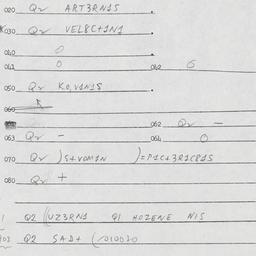 020 Qv ART3RN1S .
K030 Qv VEL8C+1N1 .
040 0 .
041 0 042 6
050 Qv K0,V1N1S .
060
062 Qv –
063 Qv – 064 0
070 Qv )S+V0M1N )=P1C+3R1C81S
080 Qv +
Q2 (UZ3RN1 Q1 H0ZENE N1S
Q2 SAD+ (010030